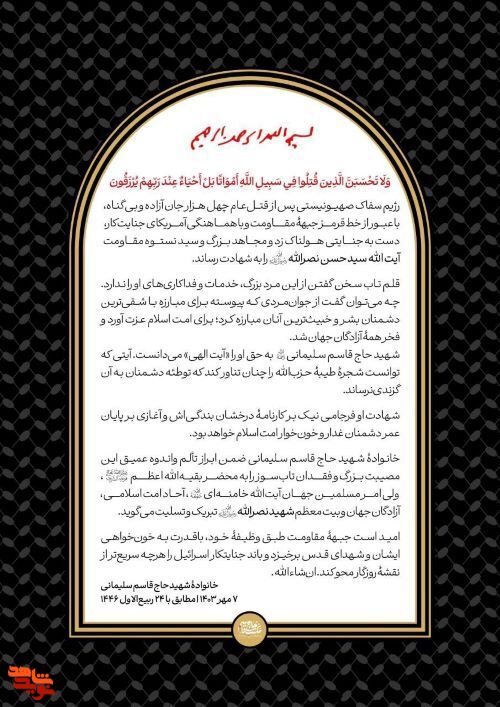 بسم الله الرحمن الرحیم
وَلَا تَحْسَبَنَّ الَّذِينَ قُتِلُوا فِي سَبِيلِ اللَّهِ أَمْوَاتًا بَلْ أَحْيَاءٌ عِنْدَ رَبِّهِمْ يُرْزَقُونَ
رژیم سفاک صهیونیستی پس از قتل عام چهل هزار جان آزاده و بی‌گناه،
با عبور از خط قرمز جبههٔ مقاومت و با هماهنگی آمریکای جنایت‌کار،
دست به جنایتی هولناک زد و مجاهد بزرگ و سید نستوه مقاومت
آیت الله سید حسن نصرالله را به شهادت رساند.
قلم تاب سخن گفتن از این مرد بزرگ، خدمات و فداکاری‌های او را ندارد.
چه می‌توان گفت از جوان‌مردی که پیوسته برای مبارزه با شقی‌ترین
دشمنان بشر و خبیث‌ترین آنان مبارزه کرد؛ برای امت اسلام عزت آورد و
فخر همهٔ آزادگان جهان شد.
شهید حاج قاسم سلیمانی به حق او را «آیت الهی» می‌دانست. آیتی که
توانست شجرهٔ طیبهٔ حزب‌الله را چنان تناور کند که توطئه دشمنان به آن
گزندی نرساند.
شهادت او فرجامی نیک بر کارنامهٔ درخشان بندگی‌اش و آغازی بر پایان
عمر دشمنان غدار و خون‌خوار امت اسلام خواهد بود.
خانوادهٔ شهید حاج قاسم سلیمانی ضمن ابراز تألم و اندوه عمیق این
مصیبت بزرگ و فقدان تاب‌سوز را به محضر بقیه‌الله اعظم ،
ولی امر مسلمین جهان آیت‌الله خامنه‌ای ، آحاد امت اسلامی،
آزادگان جهان و بیت معظم شهید نصرالله تبریک و تسلیت می‌گوید.
امید است جبههٔ مقاومت طبق وظیفهٔ خود، با قدرت به خون‌خواهی
ایشان و شهدای قدس برخیزد و باند جنایتکار اسرائیل را هرچه سریع‌تر از
نقشهٔ روزگار محو کند. ان‌شاءالله.
خانوادهٔ شهید حاج قاسم سلیمانی
۷ مهر ۱۴۰۳ | مطابق با ۲۴ ربیع‌الاول ۱۴۴۶
نوید شاهد